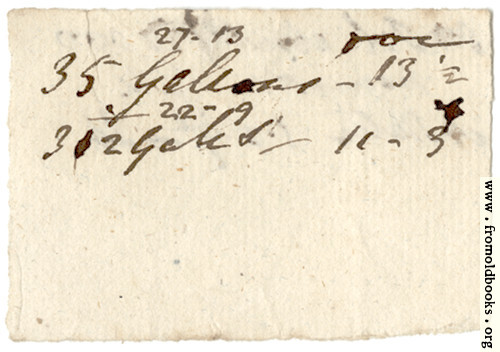 27-13
35 Gallons - 13 ½
22-9
32 Galls - 11 - 3
www.fromoldbooks.org